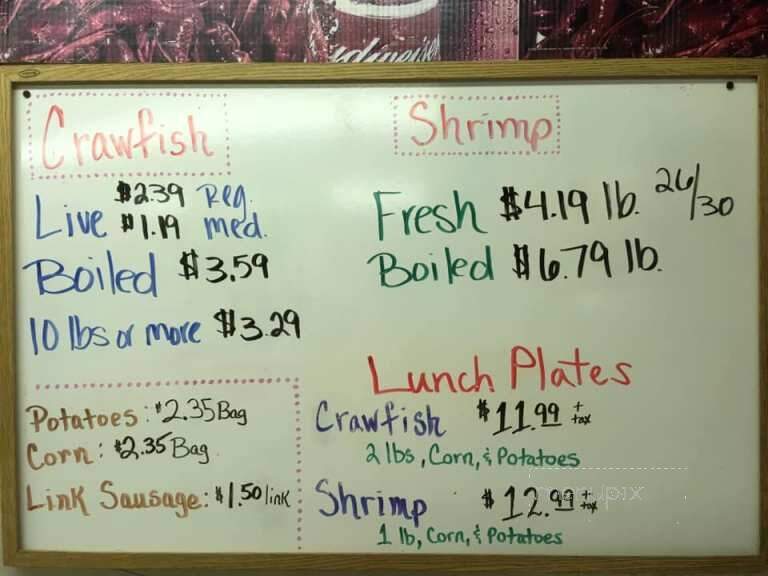 Budweiser
Crawfish
Live $2.39 Reg.
$1.19 med.
Boiled $3.59
10 lbs or more $3.29
Potatoes: $2.35 Bag
Corn: $2.35 Bag
Link Sausage: $1.50/link
Shrimp
Fresh $4.19 lb. 26/30
Boiled $6.79 lb.
Lunch Plates
Crawfish $11.99 + tax
2 lbs, Corn, & Potatoes
Shrimp $12.99 + tax
1 lb, Corn, & Potatoes
menupix